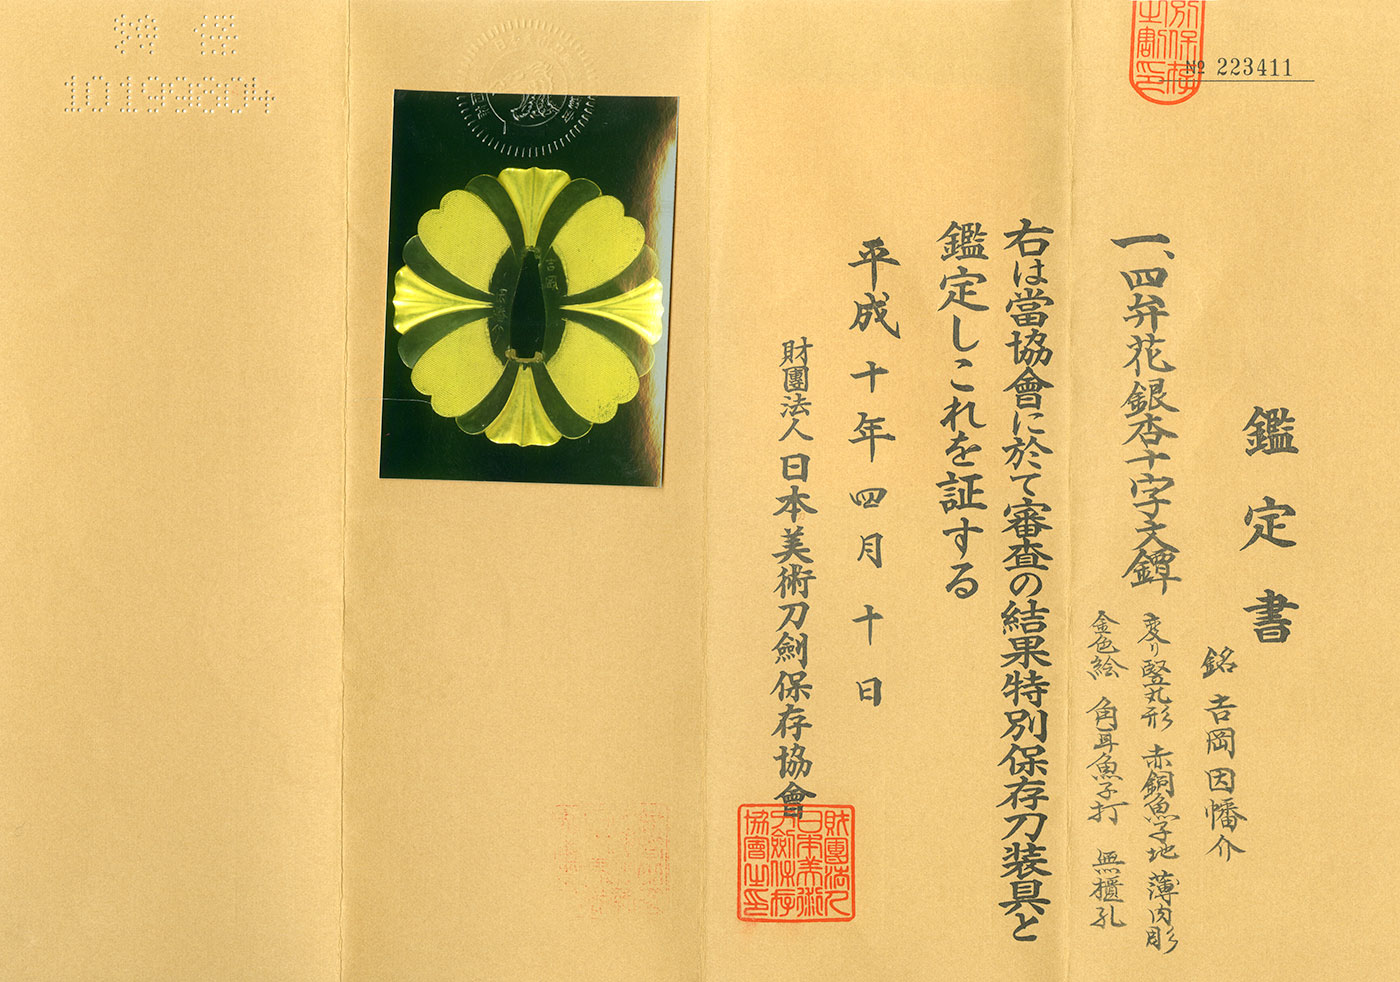 鑑定書
一、四弁花銀杏十字文鐔
銘 吉岡因幡介
変り竪丸形 赤銅魚子地 薄肉彫
金色絵 角耳魚子打 無櫃孔
右は當協會に於て審査の結果特別保存刀装具と
鑑定しこれを証する
平成十年四月十日
財團法人日本美術刀劍保存協會
財團法人
日本美術
刀劍保存
協會之印
№ 223411
特 保
10199804
吉岡
因幡介